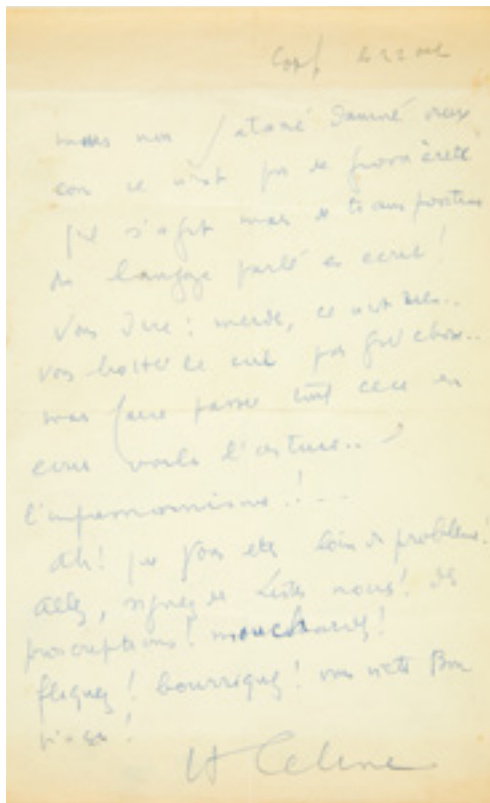 Copf le 22 oct
mais non / satané damné vieux
con ce n'est pas de grossièreté
qu'il s'agit mais de transposition
du langage parlé en écrit !
Vous dire : merde, ce n'est rien..
Vous botter le cul pas grd chose..
mais faire passer tout cela en
écrit voilà l'astuce..
l'impressionnisme !...
Ah ! que vous êtes loin du problème !
Allez, signez des listes noires ! des
proscriptions ! mouchards !
fliquez ! bourriquez ! vous n'êtes Bon
qu'à ça !
LF Céline